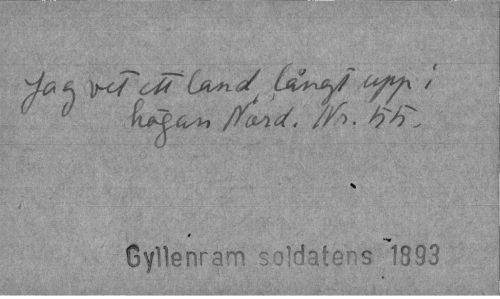 Jag vet ett land, långt upp i
högan Nord. Nr. 55.
Gyllenram soldatens 1893